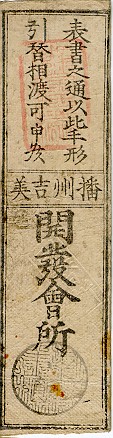 表書之通以此手形
引替相渡可申候
播州吉美
開發會所